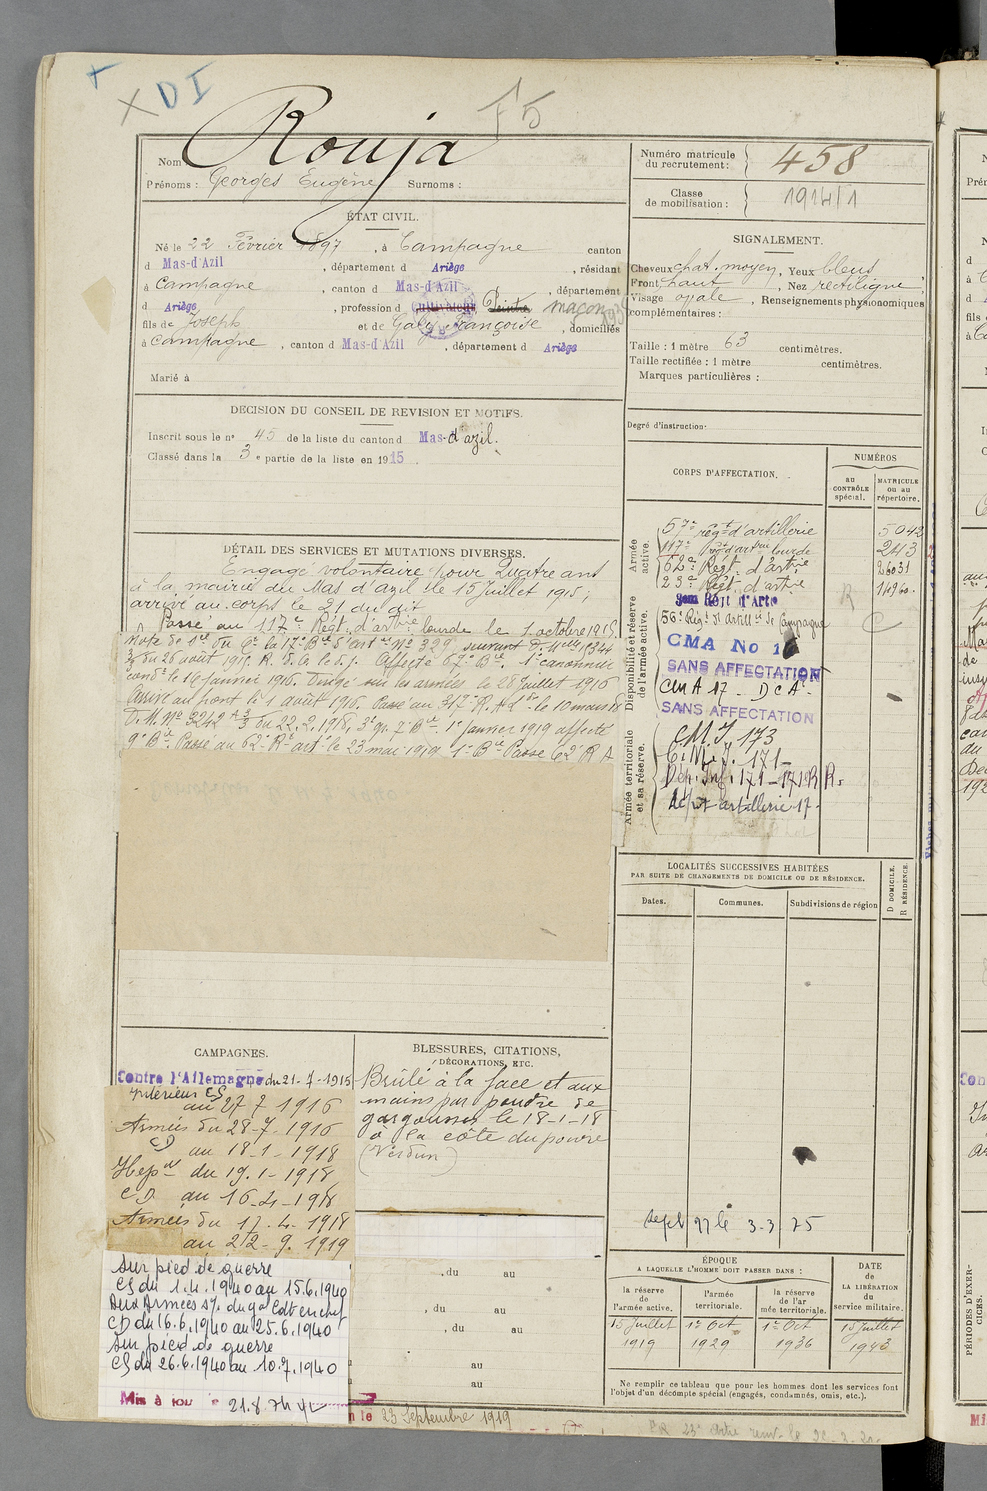 + X D I
F5
Nom Rouja
Prénoms : Georges Eugène Surnoms :
Numéro matricule du recrutement : 458
Classe de mobilisation : 1914/1
ÉTAT CIVIL.
Né le 22 Février 1897, à Campagne canton
d Mas-d'Azil, département d Ariège, résidant
à Campagne, canton d Mas-d'Azil, département
d Ariège, profession d cultivateur Peintre maçon
fils de Joseph et de Galy Françoise, domiciliés
à Campagne, canton d Mas-d'Azil, département d Ariège
Marié à
SIGNALEMENT.
Cheveux chat. moyen, Yeux bleus
Front haut, Nez rectiligne
Visage ovale, Renseignements physionomiques
complémentaires :
Taille : 1 mètre 63 centimètres.
Taille rectifiée : 1 mètre centimètres.
Marques particulières :
Degré d'instruction.
DÉCISION DU CONSEIL DE REVISION ET MOTIFS.
Inscrit sous le n° 45 de la liste du canton d Mas-d'azil.
Classé dans la 3e partie de la liste en 1915
DÉTAIL DES SERVICES ET MUTATIONS DIVERSES.
Engagé volontaire pour Quatre ans
à la mairie du Mas d'azil le 15 Juillet 1915;
arrivé au corps le 21 du dit
Passé au 117e Régt. d'artie lourde le 1 octobre 1915.
Note de
du 26 août 1915. Affecté 67e Bie. 1r canonnier
condr le 16 janvier 1916. Dirigé sur les armées le 28 Juillet 1916
Arrivé au front le 1 août 1916. Passé au 317e R.A.L. le 10 mars 18
D.M. No 3242 A 3/3 du 22.2.1918, 3e gr. 7e Bie. 1r janvier 1919 affecté
9e Bie. Passé au 62e Rt art le 23 mai 1919 1e Bie Passé 62e R A
CORPS D'AFFECTATION.
NUMÉROS
au CONTRÔLE spécial.
MATRICULE ou au répertoire.
Armée active.
57e régt d'artillerie 5042
117e régt d'artrie lourde 243
62e Régt. d'artie
23e Régt. d'artie
Régt d'Artie
Disponibilité et réserve de l'armée active.
56e Régt d'Artillie de Campagne
R C
CMA No
SANS AFFECTATION
CMA 17 - DCA
SANS AFFECTATION
Armée territoriale et sa réserve.
C.M.I 173
C.M.I. 171
Dép. Inf. 171 - 171 R R.
Dépot artillerie 17.
LOCALITÉS SUCCESSIVES HABITÉES
PAR SUITE DE CHANGEMENTS DE DOMICILE OU DE RÉSIDENCE.
Dates. Communes. Subdivisions de région
D DOMICILE. R RÉSIDENCE.
3-3 75
CAMPAGNES.
Contre l'Allemagne du 21-7-1915
Intérieur CS
au 27 7 1916
Armées du 28-7-1916
CD au 18-1-1918
du 19.1-1918
CD au 16-4-1918
Armées du 17.4-1918
au 22-9.1919
Sur pied de guerre
CS du 1.4.1940 au 15.6.1940
Aux Armées
CD du 16.6.1940 au 25.6.1940
Sur pied de guerre
CS du 26.6.1940 au 10.7.1940
Mis à jour 21.8.
BLESSURES, CITATIONS,
DÉCORATIONS, ETC.
Brûlé à la face et aux
mains par poudre de
gargousses le 18-1-18
à la côte du poivre
(Verdun)
, du au
, du au
, du au
au
au
le 23 Septembre 1919
ÉPOQUE
A LAQUELLE L'HOMME DOIT PASSER DANS :
la réserve de l'armée active.
l'armée territoriale.
la réserve de l'armée territoriale.
DATE DE LA LIBÉRATION du service militaire.
15 Juillet 1919
1er Oct 1929
1er Oct 1936
15 Juillet 1943
Ne remplir ce tableau que pour les hommes dont les services font
l'objet d'un décompte spécial (engagés, condamnés, omis, etc.).
PÉRIODES D'EXERCICES.